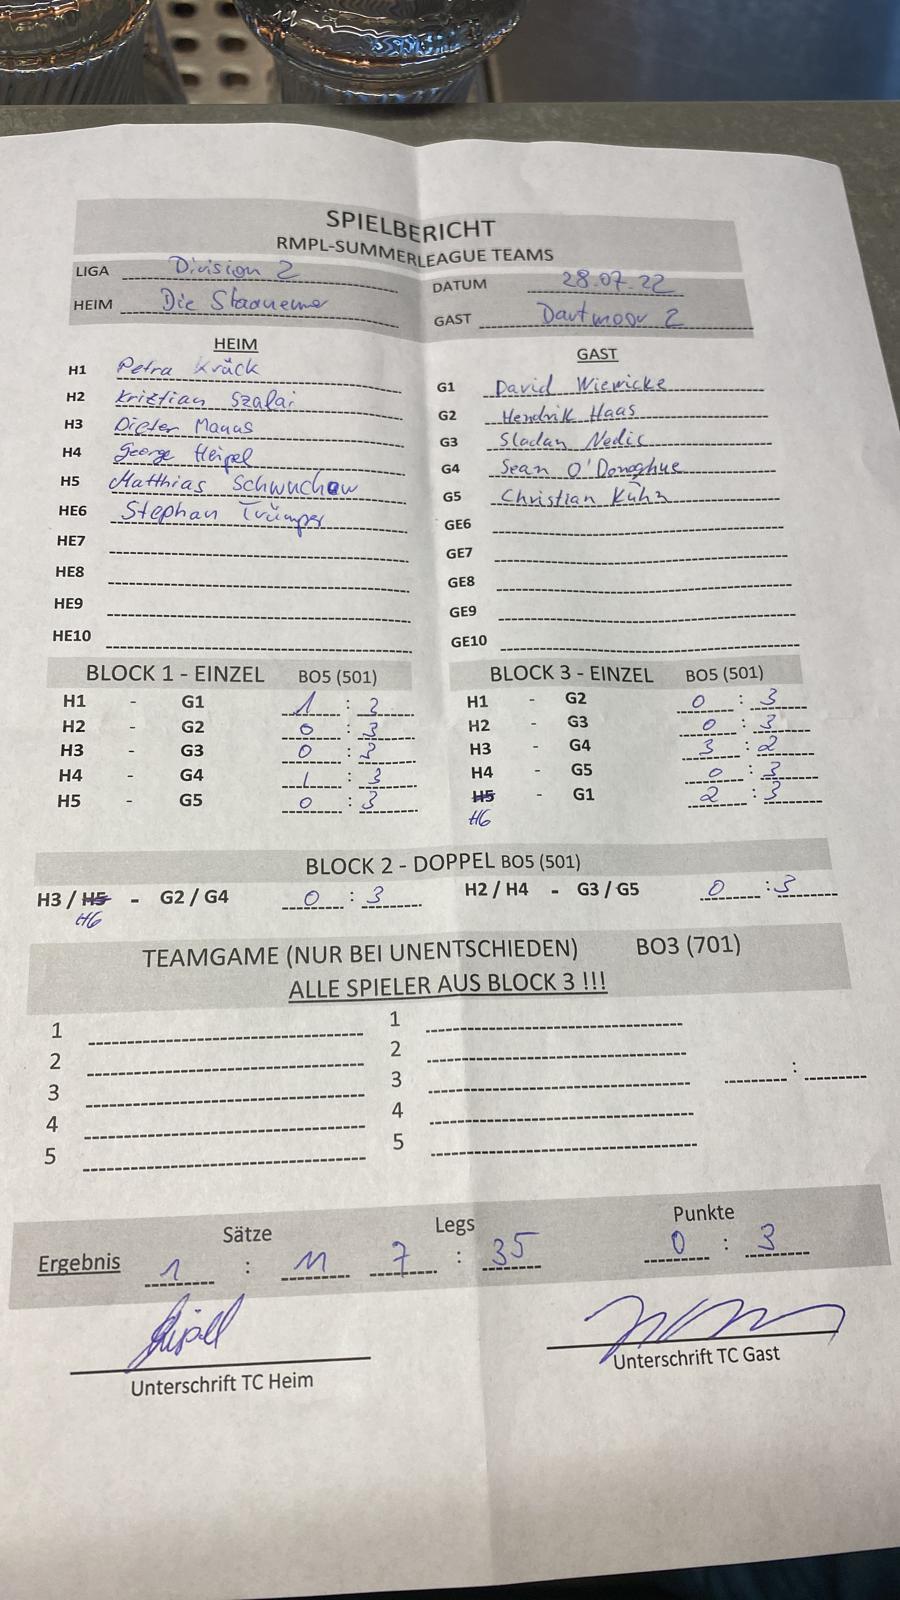 SPIELBERICHT
RMPL-SUMMERLEAGUE TEAMS
LIGA Division 2
DATUM 28.07.22
HEIM Die Staanemer
GAST Dartmoor 2
HEIM
H1 Petra Kräck
H2 Krisztian Szalai
H3 Dieter Manus
H4 George Heipel
H5 Matthias Schwuchow
HE6 Stephan Trümper
HE7
HE8
HE9
HE10
GAST
G1 David Wiewicke
G2 Hendrik Haas
G3 Sladan Nedic
G4 Sean O'Donoghue
G5 Christian Kühn
GE6
GE7
GE8
GE9
GE10
BLOCK 1 - EINZEL BO5 (501)
H1 - G1 1 : 3
H2 - G2 0 : 3
H3 - G3 0 : 3
H4 - G4 1 : 3
H5 - G5 0 : 3
BLOCK 3 - EINZEL BO5 (501)
H1 - G2 0 : 3
H2 - G3 0 : 3
H3 - G4 3 : 2
H4 - G5 0 : 3
H5 - G1 2 : 3
H6
BLOCK 2 - DOPPEL BO5 (501)
H3 / H5 - G2 / G4 0 : 3
H6
H2 / H4 - G3 / G5 0 : 3
TEAMGAME (NUR BEI UNENTSCHIEDEN) BO3 (701)
ALLE SPIELER AUS BLOCK 3 !!!
1 1
2 2
3 3 :
4 4
5 5
Sätze Legs Punkte
Ergebnis 1 : 11 7 : 35 0 : 3
Unterschrift TC Heim
Unterschrift TC Gast